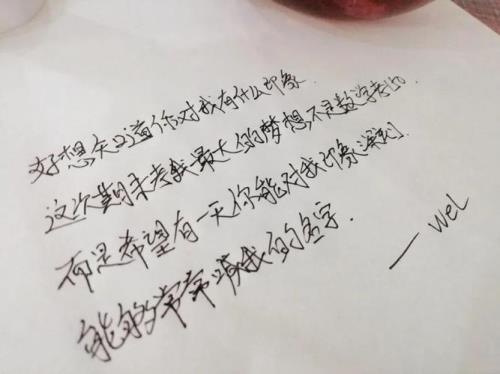 好想知道你对我有什么印象
这次期末考我最大的梦想,不是数学考100.
而是希望有一天你能对我印象深刻
能够常常喊我的名字.
— wel